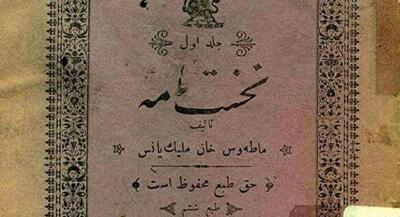 جلد اول
نخست نامه
تالیف
ماطه وس خان ملیک یانس
حق طبع محفوظ است
طبع ششم